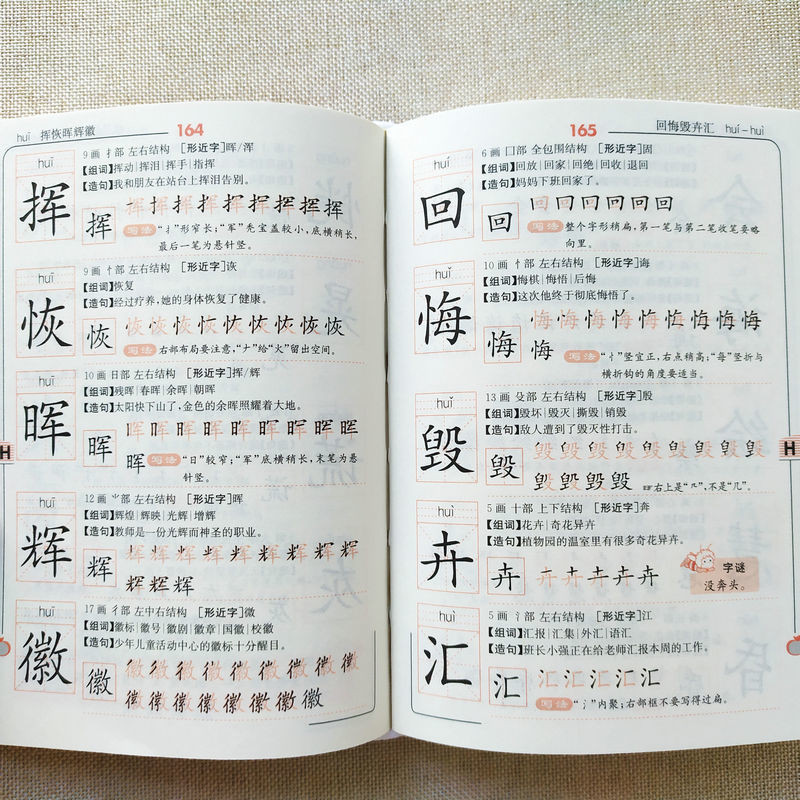 huī 挥恢晖辉徽 164
huī
挥
9画 扌部 左右结构 [形近字]晖/浑
[组词]挥动|挥泪|挥手|指挥
[造句]我和朋友在站台上挥泪告别。
挥 挥挥挥挥挥挥挥挥挥
写法 “扌”形窄长;“军”秃宝盖较小,底横稍长,
最后一笔为悬针竖。
huī
恢
9画 忄部 左右结构 [形近字]诙
[组词]恢复
[造句]经过疗养,她的身体恢复了健康。
恢 恢恢恢恢恢恢恢恢恢
写法 右部布局要注意,“𠂇”给“火”留出空间。
huī
晖
10画 日部 左右结构 [形近字]挥/辉
[组词]残晖|春晖|余晖|朝晖
[造句]太阳快下山了,金色的余晖照耀着大地。
晖 晖晖晖晖晖晖晖晖晖
晖 写法 “日”较窄;“军”底横稍长,末笔为悬
针竖。
huī
辉
12画 ⺌部 左右结构 [形近字]晖
[组词]辉煌|辉映|光辉|增辉
[造句]教师是一份光辉而神圣的职业。
辉 辉辉辉辉辉辉辉辉辉
辉辉辉
huī
徽
17画 彳部 左中右结构 [形近字]微
[组词]徽标|徽号|徽剧|徽章|国徽|校徽
[造句]少年儿童活动中心的徽标十分醒目。
徽 徽徽徽徽徽徽徽徽徽
徽徽徽徽徽徽徽徽
H
165 回悔毁卉汇 huí-huì
huí
回
6画 囗部 全包围结构 [形近字]固
[组词]回放|回家|回绝|回收|退回
[造句]妈妈下班回家了。
回 回回回回回回
写法 整个字形稍扁,第一笔与第二笔收笔要略
向里。
huǐ
悔
10画 忄部 左右结构 [形近字]诲
[组词]悔棋|悔悟|后悔
[造句]这次他终于彻底悔悟了。
悔 悔悔悔悔悔悔悔悔悔
悔 写法 “忄”竖宜正,右点稍高;“每”竖折与
横折钩的角度要适当。
huǐ
毁
13画 殳部 左右结构 [形近字]殷
[组词]毁坏|毁灭|撕毁|销毁
[造句]敌人遭到了毁灭性打击。
毁 毁毁毁毁毁毁毁毁毁
毁毁毁毁 右上是“⺇”,不是“几”。
huì
卉
5画 十部 上下结构 [形近字]奔
[组词]花卉|奇花异卉
[造句]植物园的温室里有很多奇花异卉。
卉 卉卉卉卉卉
字谜
没奔头。
huì
汇
5画 氵部 左右结构 [形近字]江
[组词]汇报|汇集|外汇|语汇
[造句]班长小强正在给老师汇报本周的工作。
汇 汇汇汇汇汇
写法 “氵”内聚;右部框不要写得过扁。
H